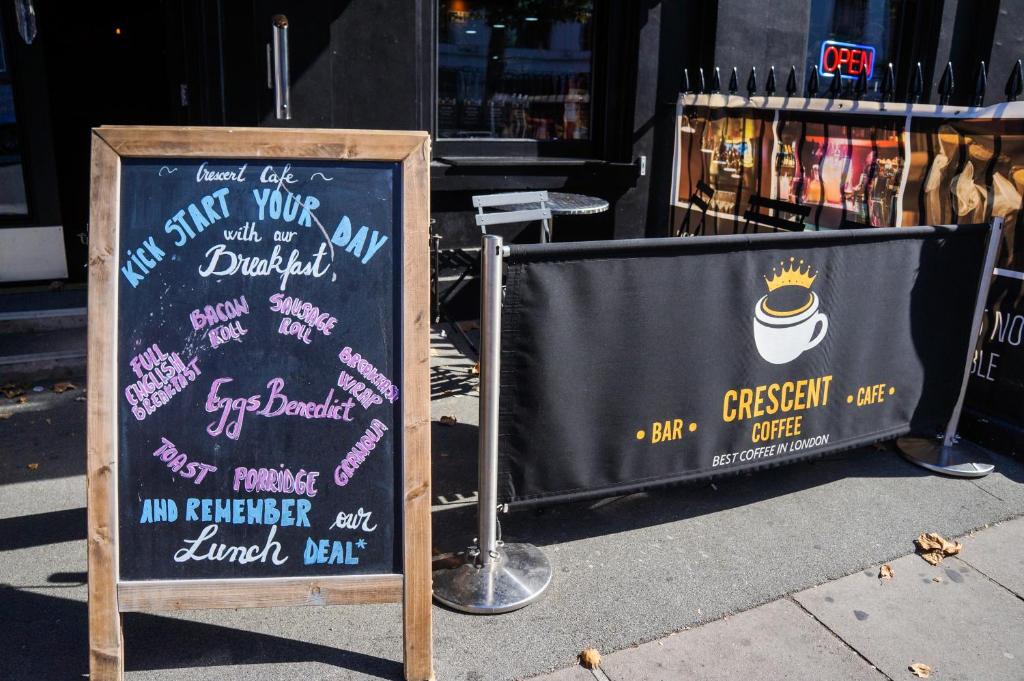 ~ Crescent Cafe ~
KICK START YOUR DAY
with our
Breakfast
BACON
ROLL
SAUSAGE
ROLL
FULL
ENGLISH
BREAKFAST
BREAKFAST
WRAP
Eggs Benedict
GRANOLA
TOAST
PORRIDGE
AND REMEMBER our
Lunch DEAL*
OPEN
CRESCENT
COFFEE
• BAR •
• CAFE •
BEST COFFEE IN LONDON
NO
BLE